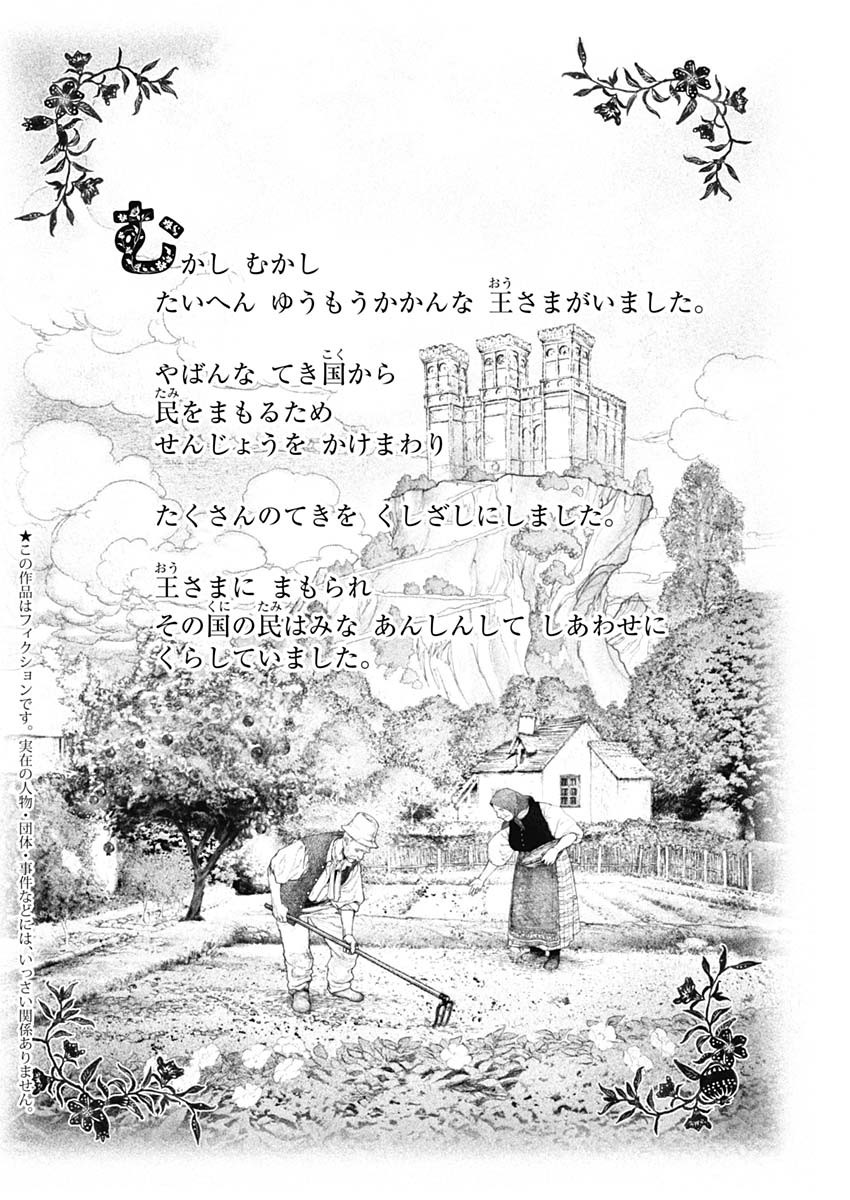 むかし むかし
たいへん ゆうもうかかんな 王さまがいました。
やばんな てき国から
民をまもるため
せんじょうを かけまわり
たくさんのてきを くしざしにしました。
王さまに まもられ
その国の民はみな あんしんして しあわせに
くらしていました。
★この作品はフィクションです。実在の人物・団体・事件などには、いっさい関係ありません。